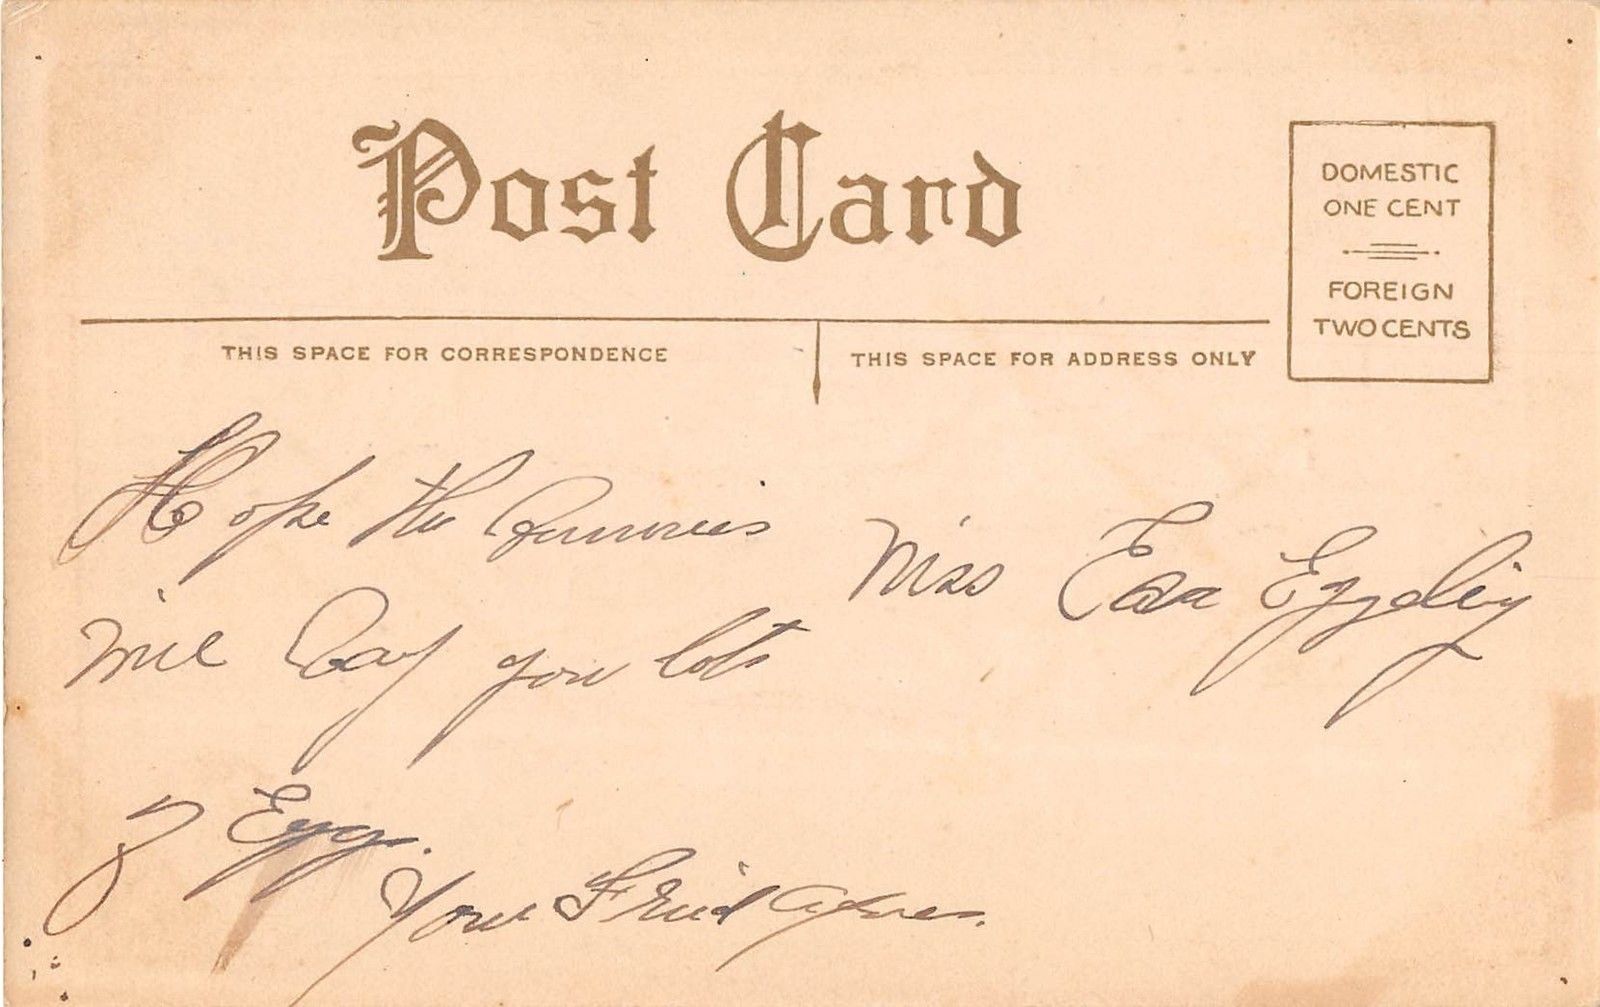 Post Card
DOMESTIC
ONE CENT
FOREIGN
TWO CENTS
THIS SPACE FOR CORRESPONDENCE
THIS SPACE FOR ADDRESS ONLY
Hope the Bunnies
will Lay you lots
of Eggs.
Your Friend Agnes.
Miss Eva